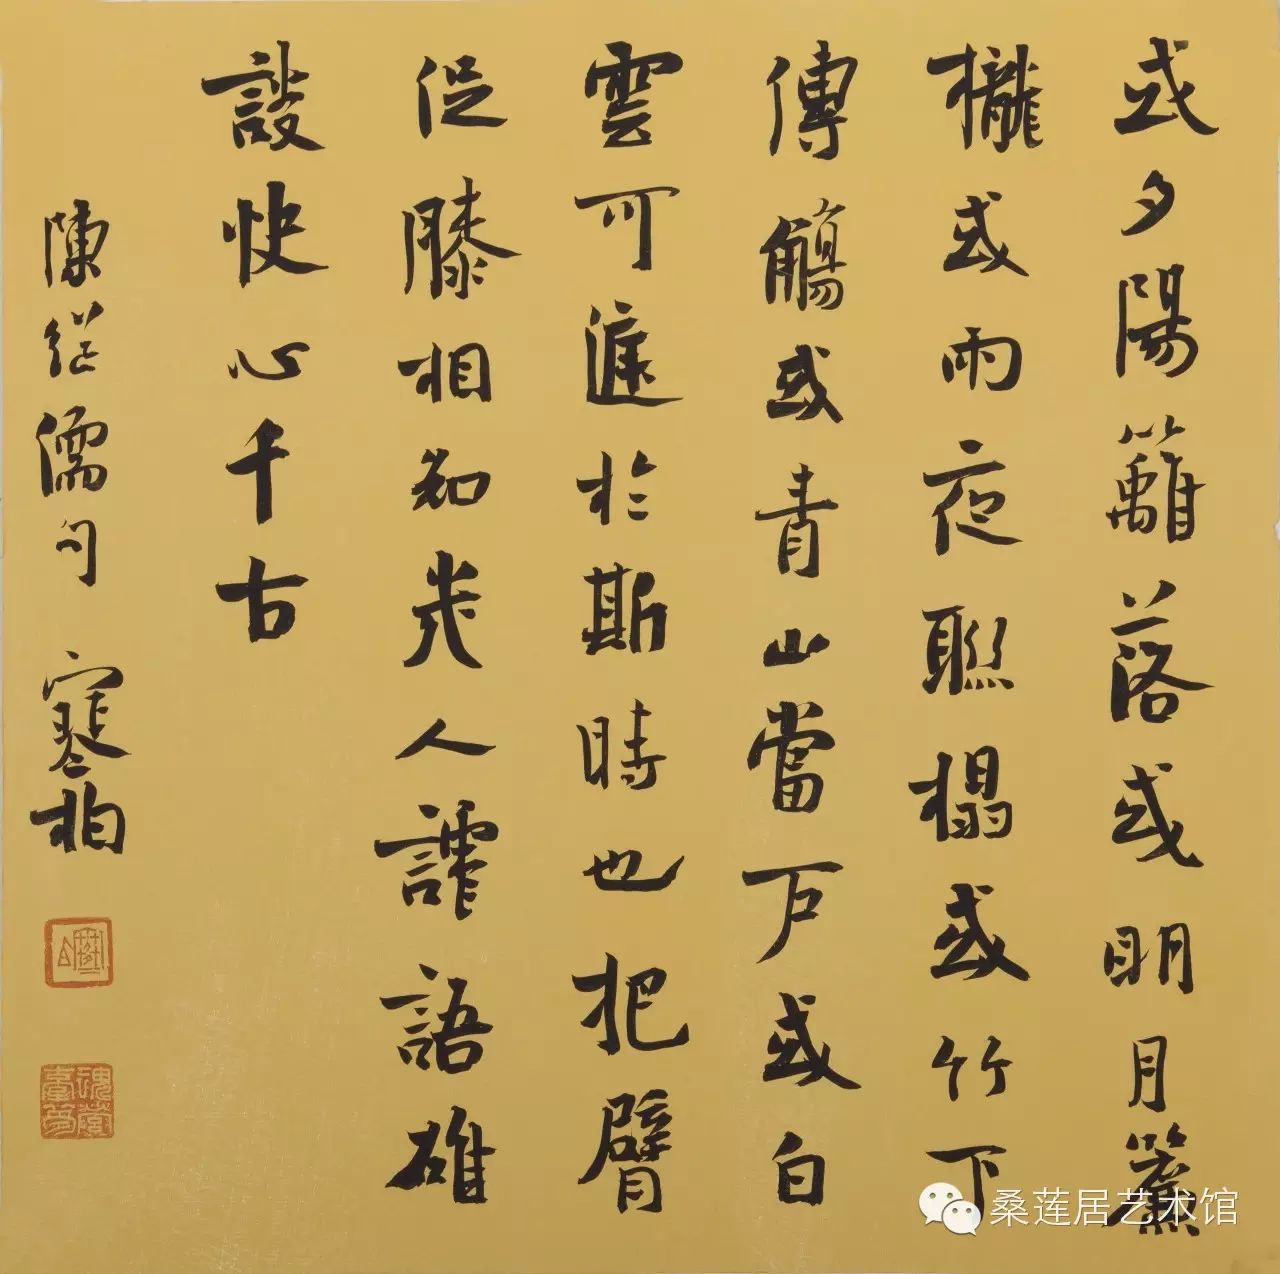 或夕陽籬落或明月簾
櫳或雨夜聯榻或竹下
傳觴或青山當戶或白
雲可於斯時也把臂
促膝相知幾人謔語雄
談快心千古
陳繼儒句 寒柏
桑莲居艺术馆